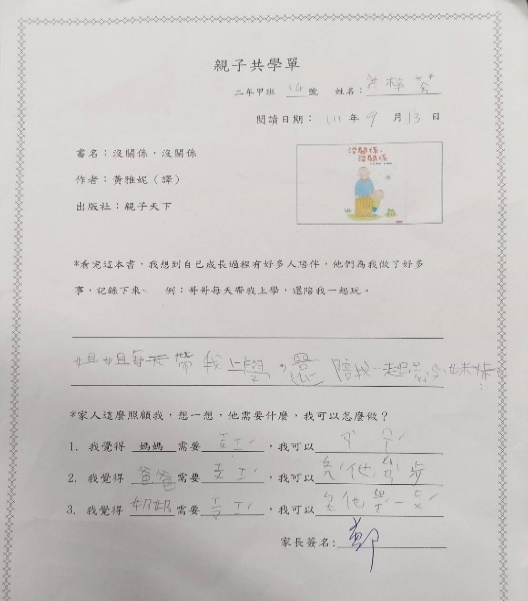 親子共學單
二年甲班 14 號 姓名：洪梓
閱讀日期： 111 年 9 月 13 日
書名：沒關係，沒關係
作者：黃雅妮（譯）
出版社：親子天下
沒關係，
沒關係
*看完這本書，我想到自己成長過程有好多人陪伴，他們為我做了好多
事，記錄下來。 例：哥哥每天帶我上學，還陪我一起玩。
姐姐每天帶我上學，還陪我一起
*家人這麼照顧我，想一想，他需要什麼，我可以怎麼做？
1. 我覺得 媽媽 需要 ，我可以
2. 我覺得 爸爸 需要 ，我可以
3. 我覺得 奶奶 需要 ，我可以
家長簽名：鄭